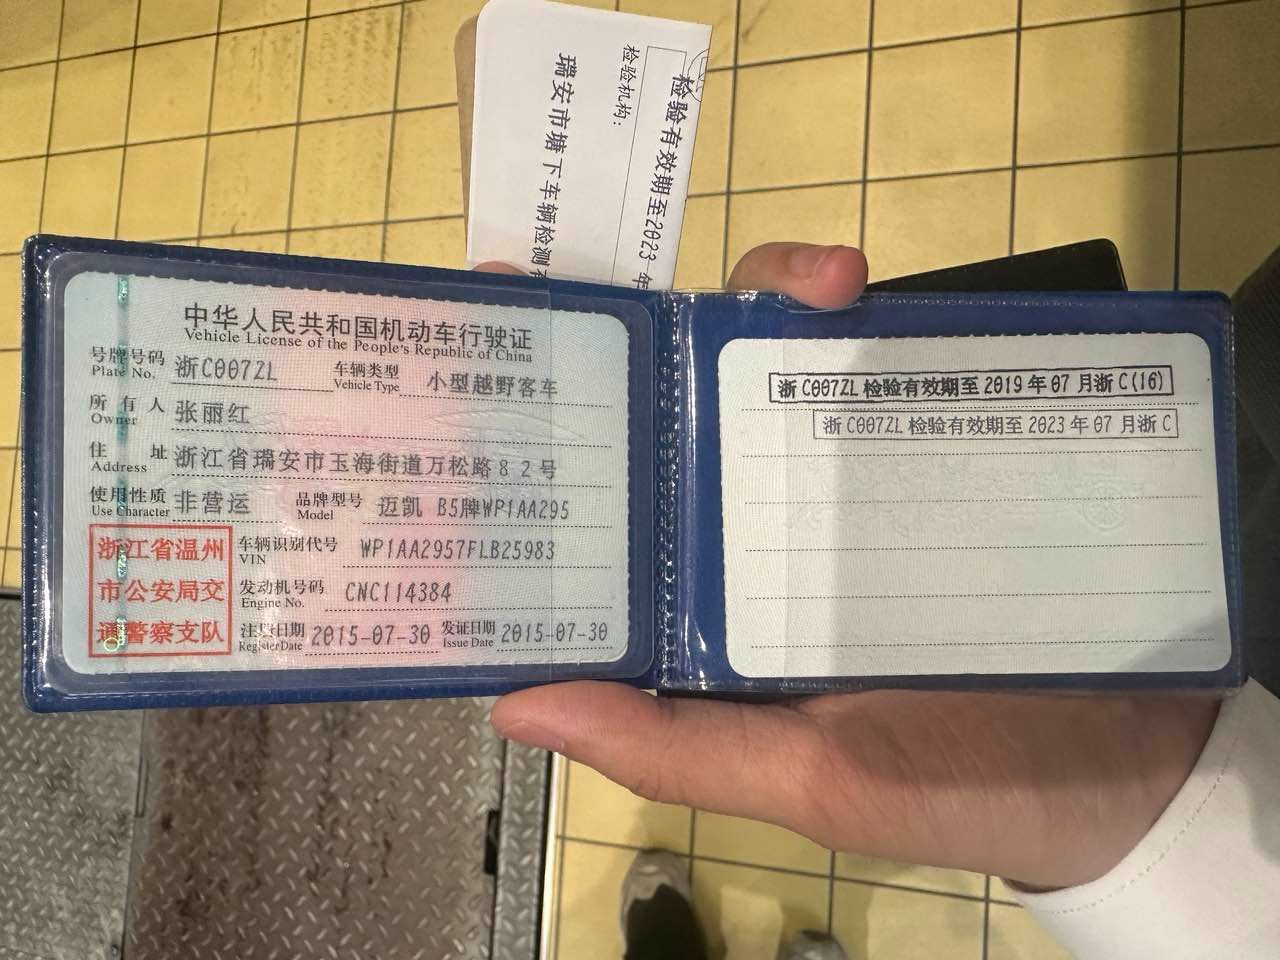 检验有效期至2023年
检验机构：
瑞安市塘下车辆检测
中华人民共和国机动车行驶证
Vehicle License of the People's Republic of China
号牌号码 浙C007ZL 车辆类型 小型越野客车
Plate No. Vehicle Type
所有人 张丽红
Owner
住址 浙江省瑞安市玉海街道万松路82号
Address
使用性质 非营运 品牌型号 迈凯 B5牌WP1AA295
Use Character Model
浙江省温州
市公安局交
通警察支队
车辆识别代号 WP1AA2957FLB25983
VIN
发动机号码 CNC114384
Engine No.
注册日期 2015-07-30 发证日期 2015-07-30
Register Date Issue Date
浙C007ZL检验有效期至2019年07月浙C(16)
浙C007ZL检验有效期至2023年07月浙C